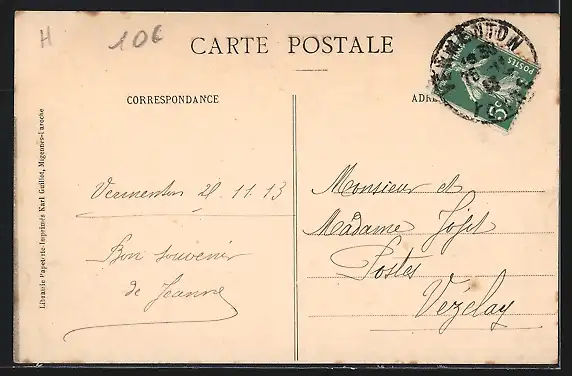 H
10€
CARTE POSTALE
VERMENTON
POSTES
5
CORRESPONDANCE
ADRE
Librairie Papeterie-Imprimés Karl Guillot, Migennes-Laroche
Vermenton 21.11.13
Bon souvenir
de Jeanne
Monsieur et
Madame
Postes
Vézelay